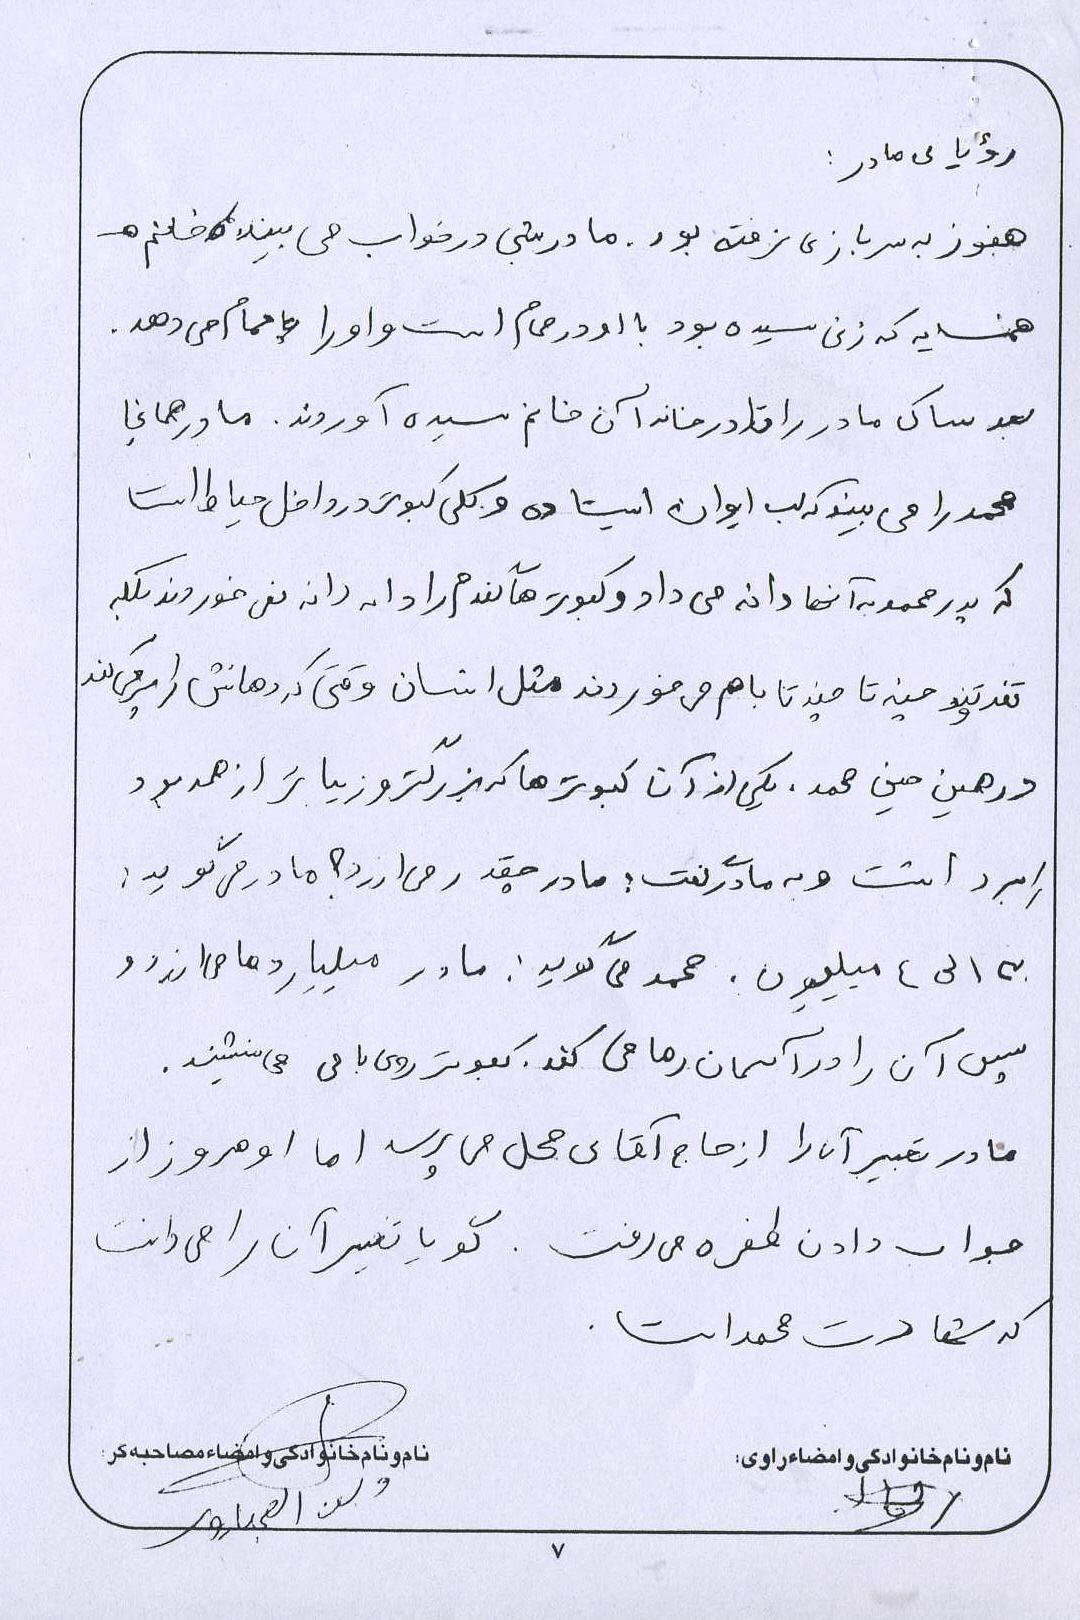 رؤیای مادر:
هنوز به سربازی نرفته بود. مادر شبی در خواب می بیند که خانم
همسایه که زنی سیده بود با او در حمام است و او را حمام می دهد.
بعد ساک مادر را تا در خانه آن خانم سیده آوردند. مادر همانجا
محمد را می بیند که لب ایوان ایستاده و کلی کبوتر در داخل حیاط است
که پدر محمد به آنها دانه می داد و کبوترها گندم را دانه دانه نمی خوردند بلکه
تند تند چند تا چند تا با هم می خوردند مثل انسان وقتی که دهانش را پر می کند
در همین حین محمد، یکی از آن کبوترها که بزرگتر و زیباتر از همه بود
را برداشت و به مادر گفت: مادر چقدر می ارزد؟ مادر می گوید:
۳ الی ٤ میلیون. محمد می گوید: مادر میلیاردها می ارزد و
سپس آن را در آسمان رها می کند. کبوتر روی بامی می نشیند.
مادر تعبیر آن را از حاج آقای محل می پرسد اما او هر روز از
جواب دادن طفره می رفت. گویا تعبیر آن را می دانست
که شهادت محمد است.
نام و نام خانوادگی و امضاء راوی:
نام و نام خانوادگی و امضاء مصاحبه گر:
۷